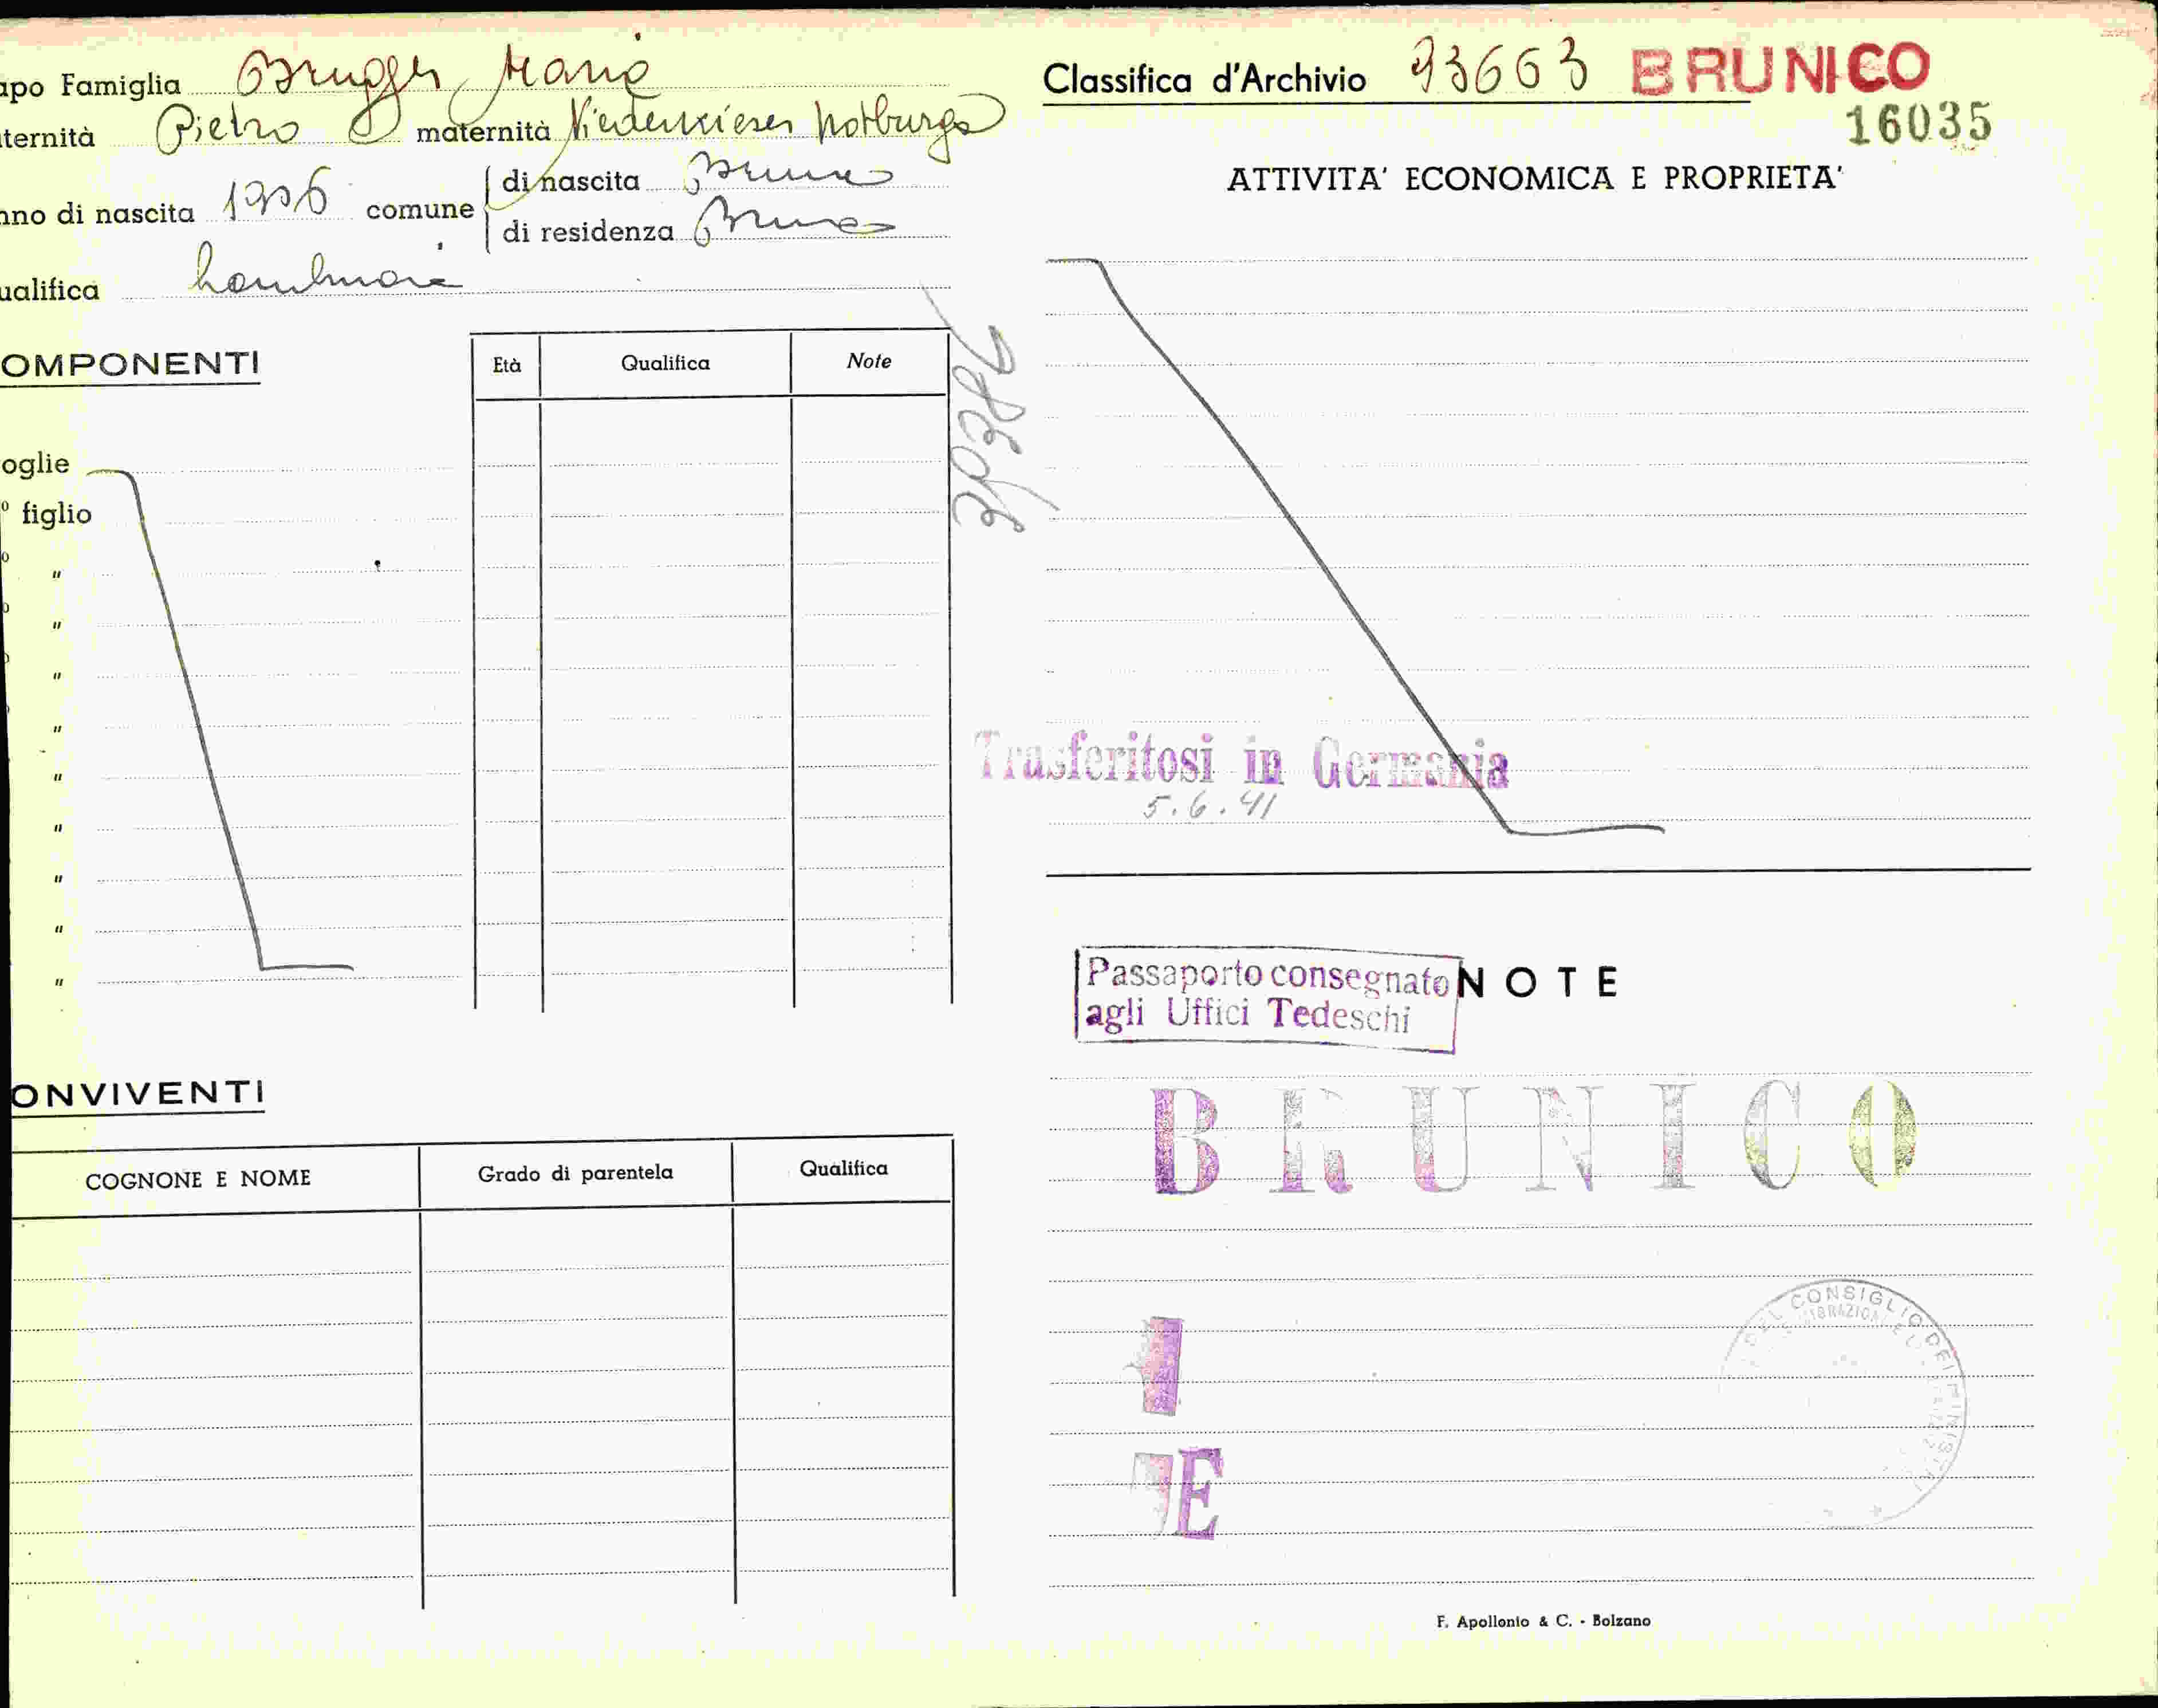 apo Famiglia Brugger Maria
ternità Pietro maternità Niederwieser Notburga
nno di nascita 1906 comune di nascita Brunico
di residenza Brunico
ualifica
OMPONENTI
Età Qualifica Note
oglie
° figlio
"
"
"
"
"
"
"
"
"
ONVIVENTI
COGNONE E NOME Grado di parentela Qualifica
Classifica d'Archivio 93663 BRUNICO
16035
ATTIVITA' ECONOMICA E PROPRIETA'
Trasferitosi in Germania
5.6.41
Passaporto consegnato
agli Uffici Tedeschi
NOTE
BRUNICO
I
E
DEL CONSIGLIO DEI MINISTRI
F. Apollonio & C. - Bolzano